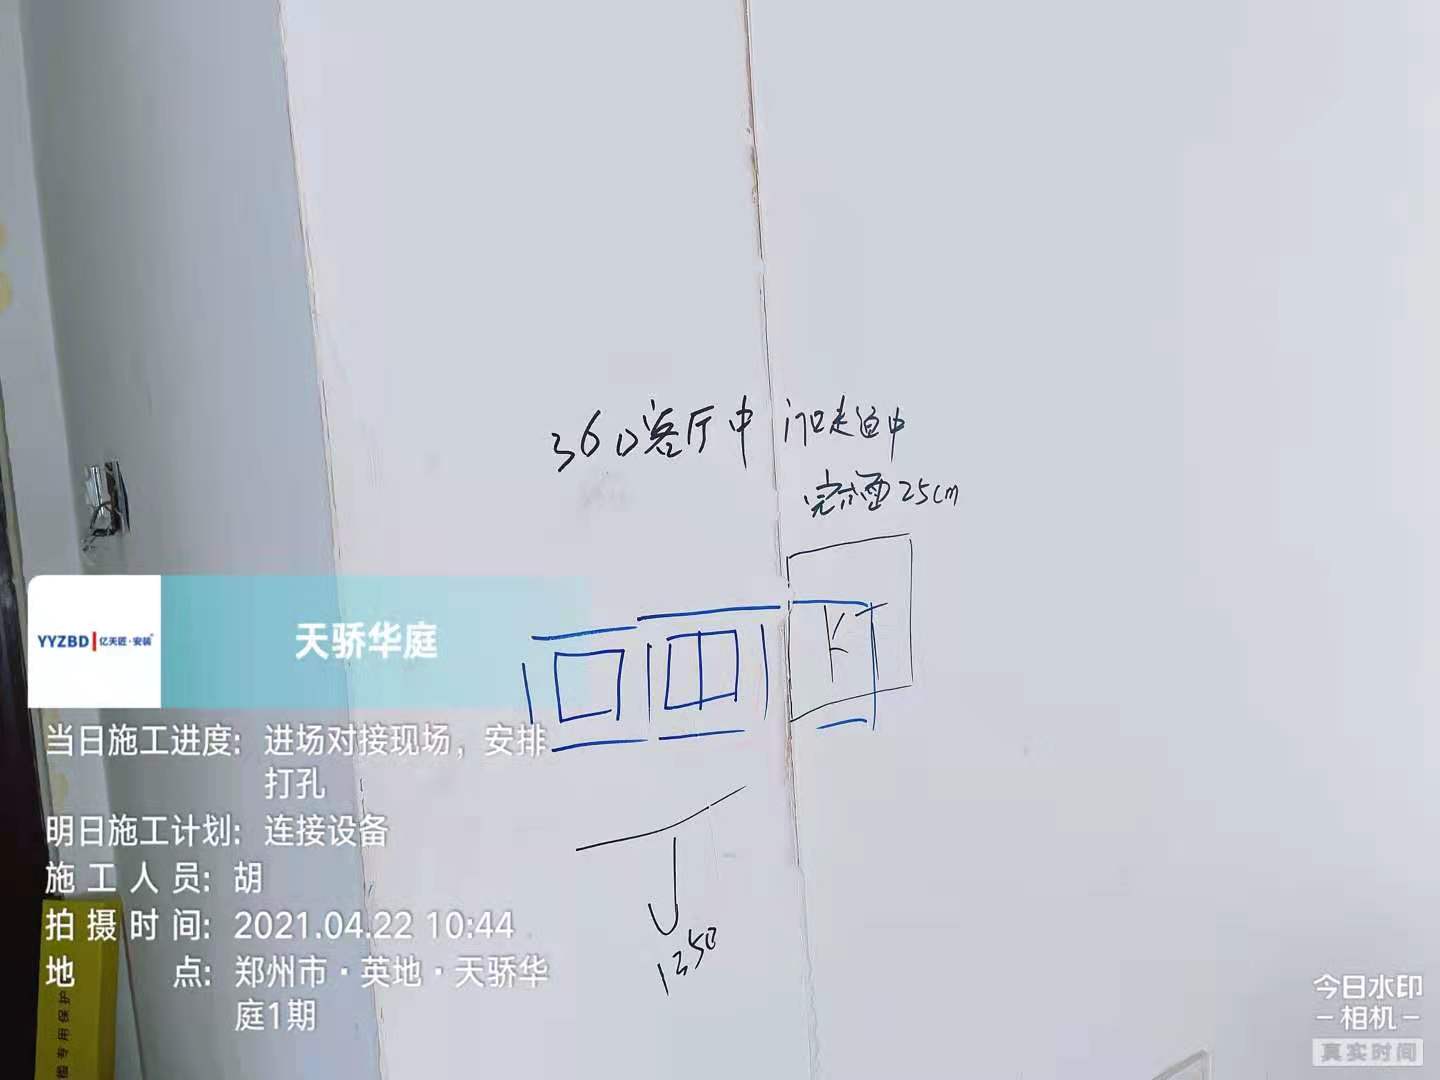 360客厅中 门口走道中
完成面25cm
K
1250
YYZBD 亿天匠·安装
天骄华庭
当日施工进度: 进场对接现场，安排
打孔
明日施工计划: 连接设备
施工人员: 胡
拍摄时间: 2021.04.22 10:44
地点: 郑州市·英地·天骄华
庭1期
专用保护
今日水印
相机
真实时间